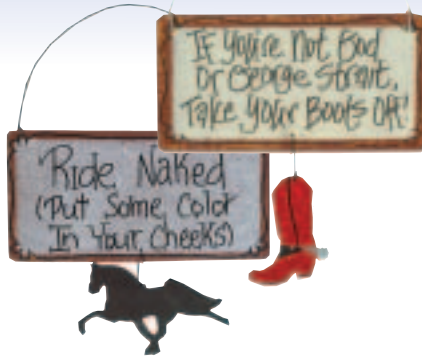 If You're Not God
Or George Strait,
Take Your Boots Off!
Ride Naked
(Put Some Color
In Your Cheeks)